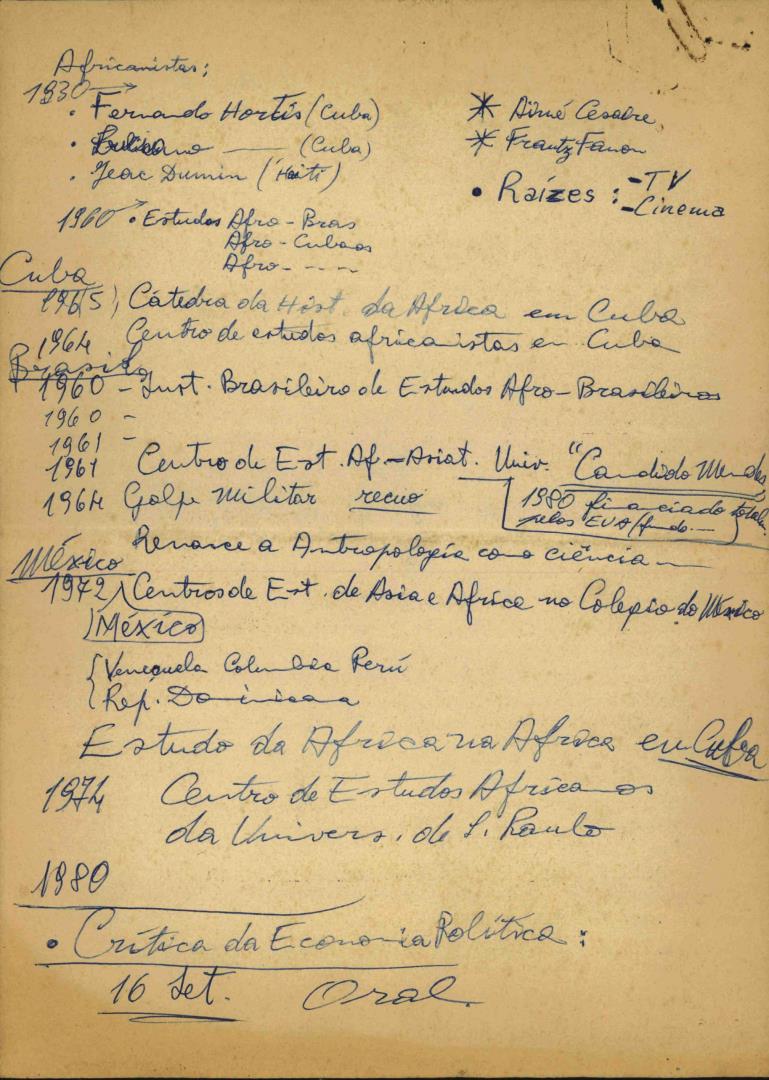 Africanistas;
1930 →
• Fernando Hortis (Cuba)
• — (Cuba)
• Jeac Dumin (Haiti)
* Aimé Cesaire
* Frantz Fanon
• Raízes : - TV
- Cinema
1960 → • Estudos Afro-Bras
Afro-Cubanos
Afro- ----
Cuba
1965), Cátedra da Hist. da Africa em Cuba
1964 Centro de estudos africanistas en Cuba
Brasil
1960 - Inst. Brasileiro de Estudos Afro-Brasileiros
1960 -
1961 -
1961 Centro de Est. Af.-Asiat. Univ. "Candido Mendes
1964 Golpe Militar recuo
1980 financiado totalm.
pelos EUA/fundo.—
Renasce a Antropologia como ciência —
México
1972 Centros de Est. de Asia e Africa no Colegio do México
México
{ Venezuela Colombia Perú
Rep. Dominicana
Estudo da Africa na Africa en Cuba
1974 Centro de Estudos Africanos
da Univers. de S. Paulo
1980
• Crítica da Economia Política :
16 Set. Oral